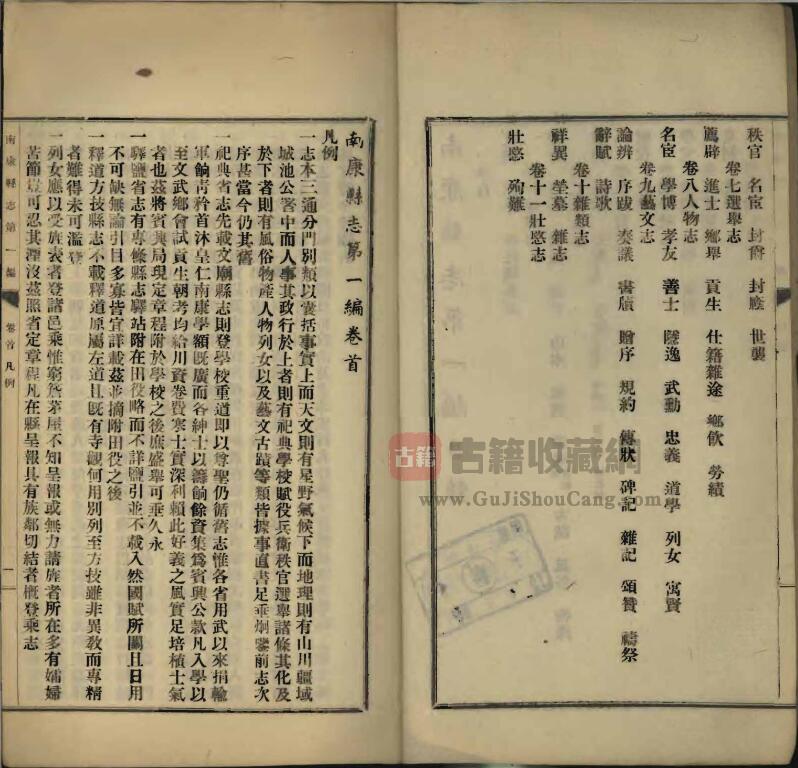 秩官 名宦 封爵 封廕 世襲
卷七選舉志
薦辟 進士 鄉舉 貢生 仕籍雜途 鄉飲 勞績
卷八人物志
名宦 學博 孝友 善士 隱逸 武勳 忠義 道學 列女 寓賢
卷九藝文志
論辨 序跋 奏議 書牘 贈序 規約 傳狀 碑記 雜記 頌贊 禱祭
辭賦 詩歌
卷十雜類志
祥異 塋墓 雜志
卷十一壯愍志
壯愍 殉難
南康縣志第一編卷首
凡例
一志本三通分門別類以囊括事實上而天文則有星野氣候下而地理則有山川疆域
城池公署中而人事其政行於上者則有祀典學校賦役兵衛秩官選舉諸條其化及
於下者則有風俗物產人物列女以及藝文古蹟等類皆據事直書足垂炯鑒前志次
序甚當今仍其舊
一祀典省志先載文廟縣志則登學校重道即以尊聖仍循舊志惟各省用武以來捐輸
軍餉青衿首沐皇仁南康學額既廣而各紳士以籌餉餘資集為賓興公款凡入學以
至文武鄉會試貢生朝考均給川資卷費寒士實深利賴此好義之風實足培植士氣
者也茲將賓興局現定章程附於學校之後庶盛舉可垂久永
一驛鹽省志有專條縣志驛站附在田役略而不詳鹽引並不載入然國賦所關且日用
不可缺無論引目多寡皆宜詳載茲並摘附田役之後
一釋道方技縣志不載釋道原屬左道且既有寺觀何用別列至方技雖非異教而專精
者難得未可濫登
一列女應以受旌表者登諸邑乘惟窮簷茅屋不知呈報或無力請旌者所在多有孀婦
苦節豈可忍其湮沒茲照省定章程凡在縣呈報具有族鄰切結者概登乘志
南康縣志第一編
卷首 凡例
一
古籍
古籍收藏網
www.GuJiShouCang.com